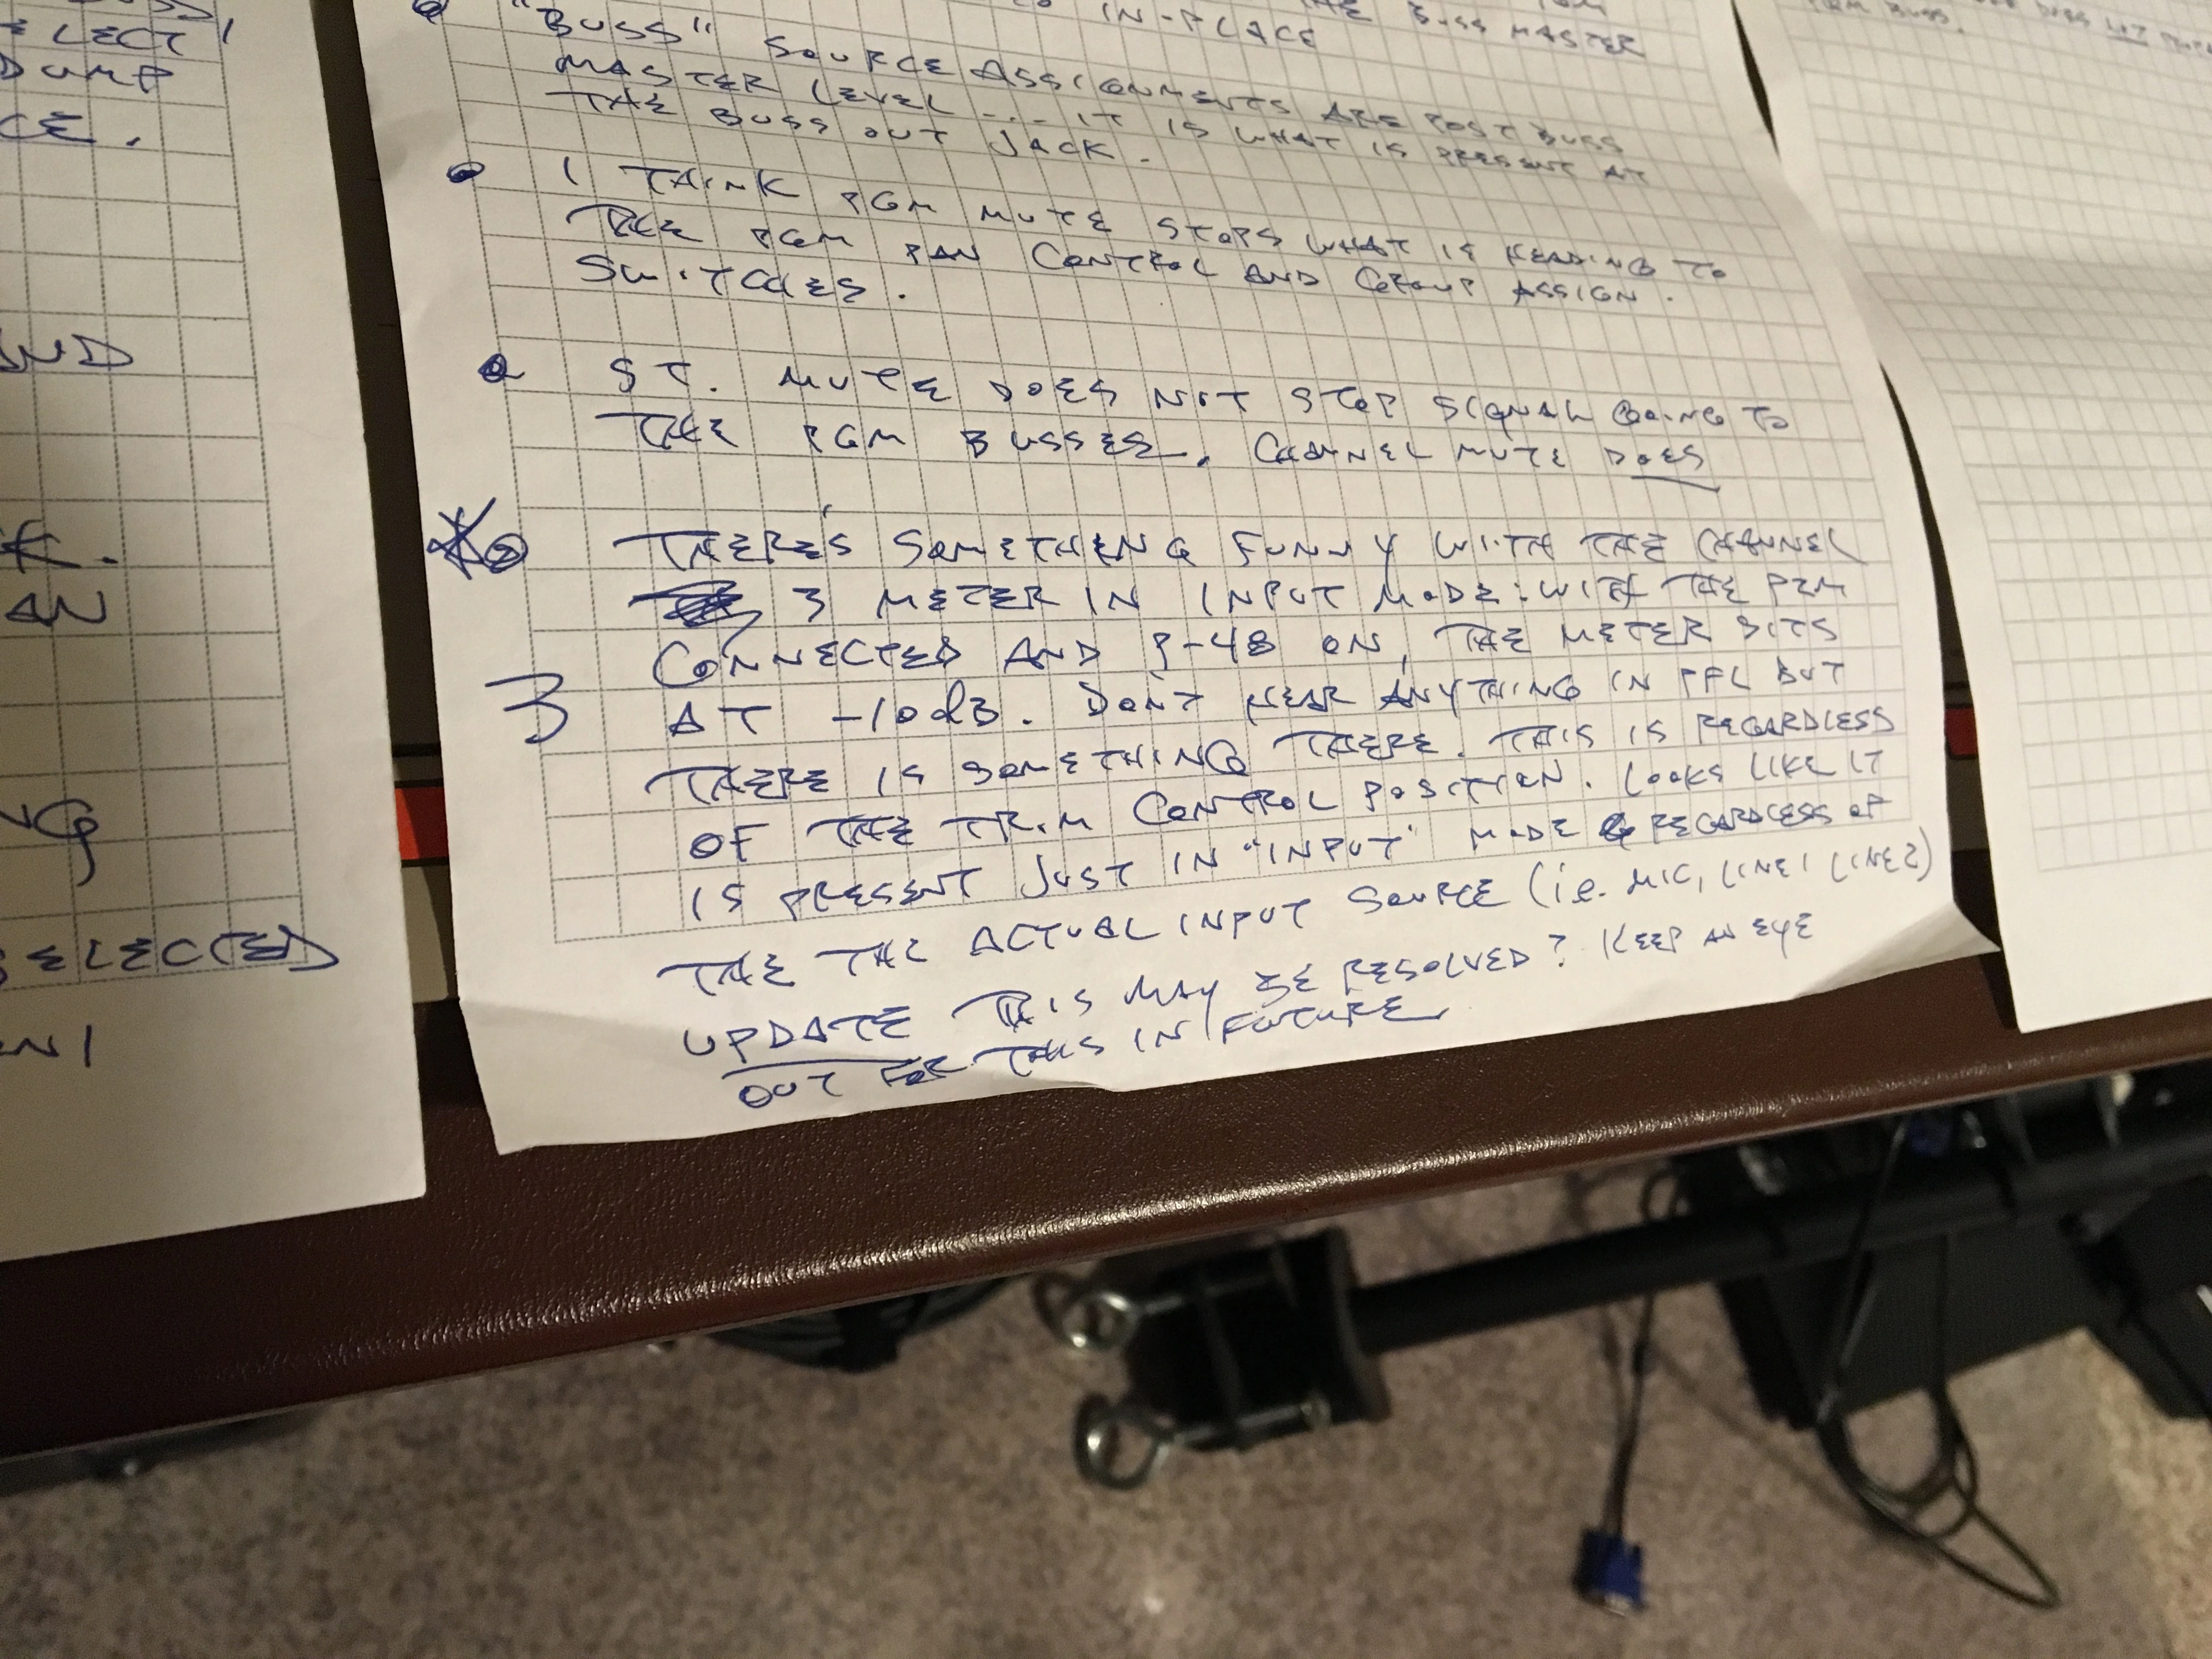 ELECT
DUMP
CE.
AND
AN
NG
SELECTED
IN-PLACE
THE BUSS MASTER
"BUSS" SOURCE ASSIGNMENTS ARE POST BUSS
MASTER LEVEL --- IT IS WHAT IS PRESENT AT
THE BUSS OUT JACK.
I THINK PGM MUTE STOPS WHAT IS HEADING TO
THE PGM PAN CONTROL AND GROUP ASSIGN.
SWITCHES.
ST. MUTE DOES NOT STOP SIGNAL GOING TO
THE PGM BUSSES. CHANNEL MUTE DOES
THERE'S SOMETHING FUNNY WITH THE CHANNEL
3 METER IN INPUT MODE: WITH THE PZM
CONNECTED AND P-48 ON, THE METER SITS
3
AT -10dB. DON'T HEAR ANYTHING IN PFL BUT
THERE IS SOMETHING THERE. THIS IS REGARDLESS
OF THE TRIM CONTROL POSITION. LOOKS LIKE IT
IS PRESENT JUST IN "INPUT" MODE & REGARDLESS OF
THE THE ACTUAL INPUT SOURCE (i.e. MIC, LINE1 LINE2)
UPDATE THIS MAY BE RESOLVED? KEEP AN EYE
OUT FOR THIS IN FUTURE
PGM BUSS.